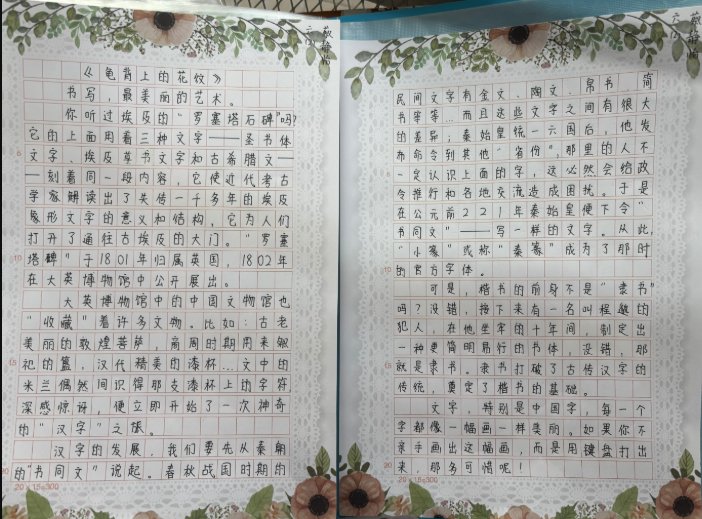 《龟背上的花纹》
书写,最美丽的艺术。
你听过埃及的“罗塞塔石碑”吗?
它的上面用着三种文字——圣书体
文字、埃及草书文字和古希腊文—
—刻着同一段内容,它使近代考古
学家解读出了失传一千多年的埃及
象形文字的意义和结构,它为人们
打开了通往古埃及的大门。“罗塞
塔碑”于1801年归属英国,1802年
在大英博物馆中公开展出。
大英博物馆中的中国文物馆也
“收藏”着许多文物。比如:古老
美丽的敦煌菩萨,商周时期用来祭
祀的簋,汉代精美的漆杯…文中的
米兰偶然间识得那支漆杯上的字符
深感惊讶,便立即开始了一次神奇
的“汉字”之旅。
汉字的发展,我们要先从秦朝
的“书同文”说起。春秋战国时期的
20×15=300
六
民间文字有金文、陶文、帛书、简
书等等…而且这些文字之间有很大
的差异;秦始皇统一六国后,他发
布命令到其他“省份”,那里的人不
一定认识上面的字,这必然会给政
令推行和各地交流造成困扰。于是
在公元前221年秦始皇便下令“
书同文”——写一样的文字。从此,
“小篆”或称“秦篆”成为了那时
的官方字体。
可是,楷书的前身不是“隶书”
吗?没错,接下来有一名叫程邈的
犯人,在他坐牢的十年间,制定出
一种更简明易行的书体,没错,那
就是隶书。隶书打破了古传汉字的
传统,奠定了楷书的基础。
文字,特别是中国字,每一个
字都像一幅画一样美丽。如果你不
亲手画出这幅画,而是用键盘打出
来,那多可惜呢!
20×15=300